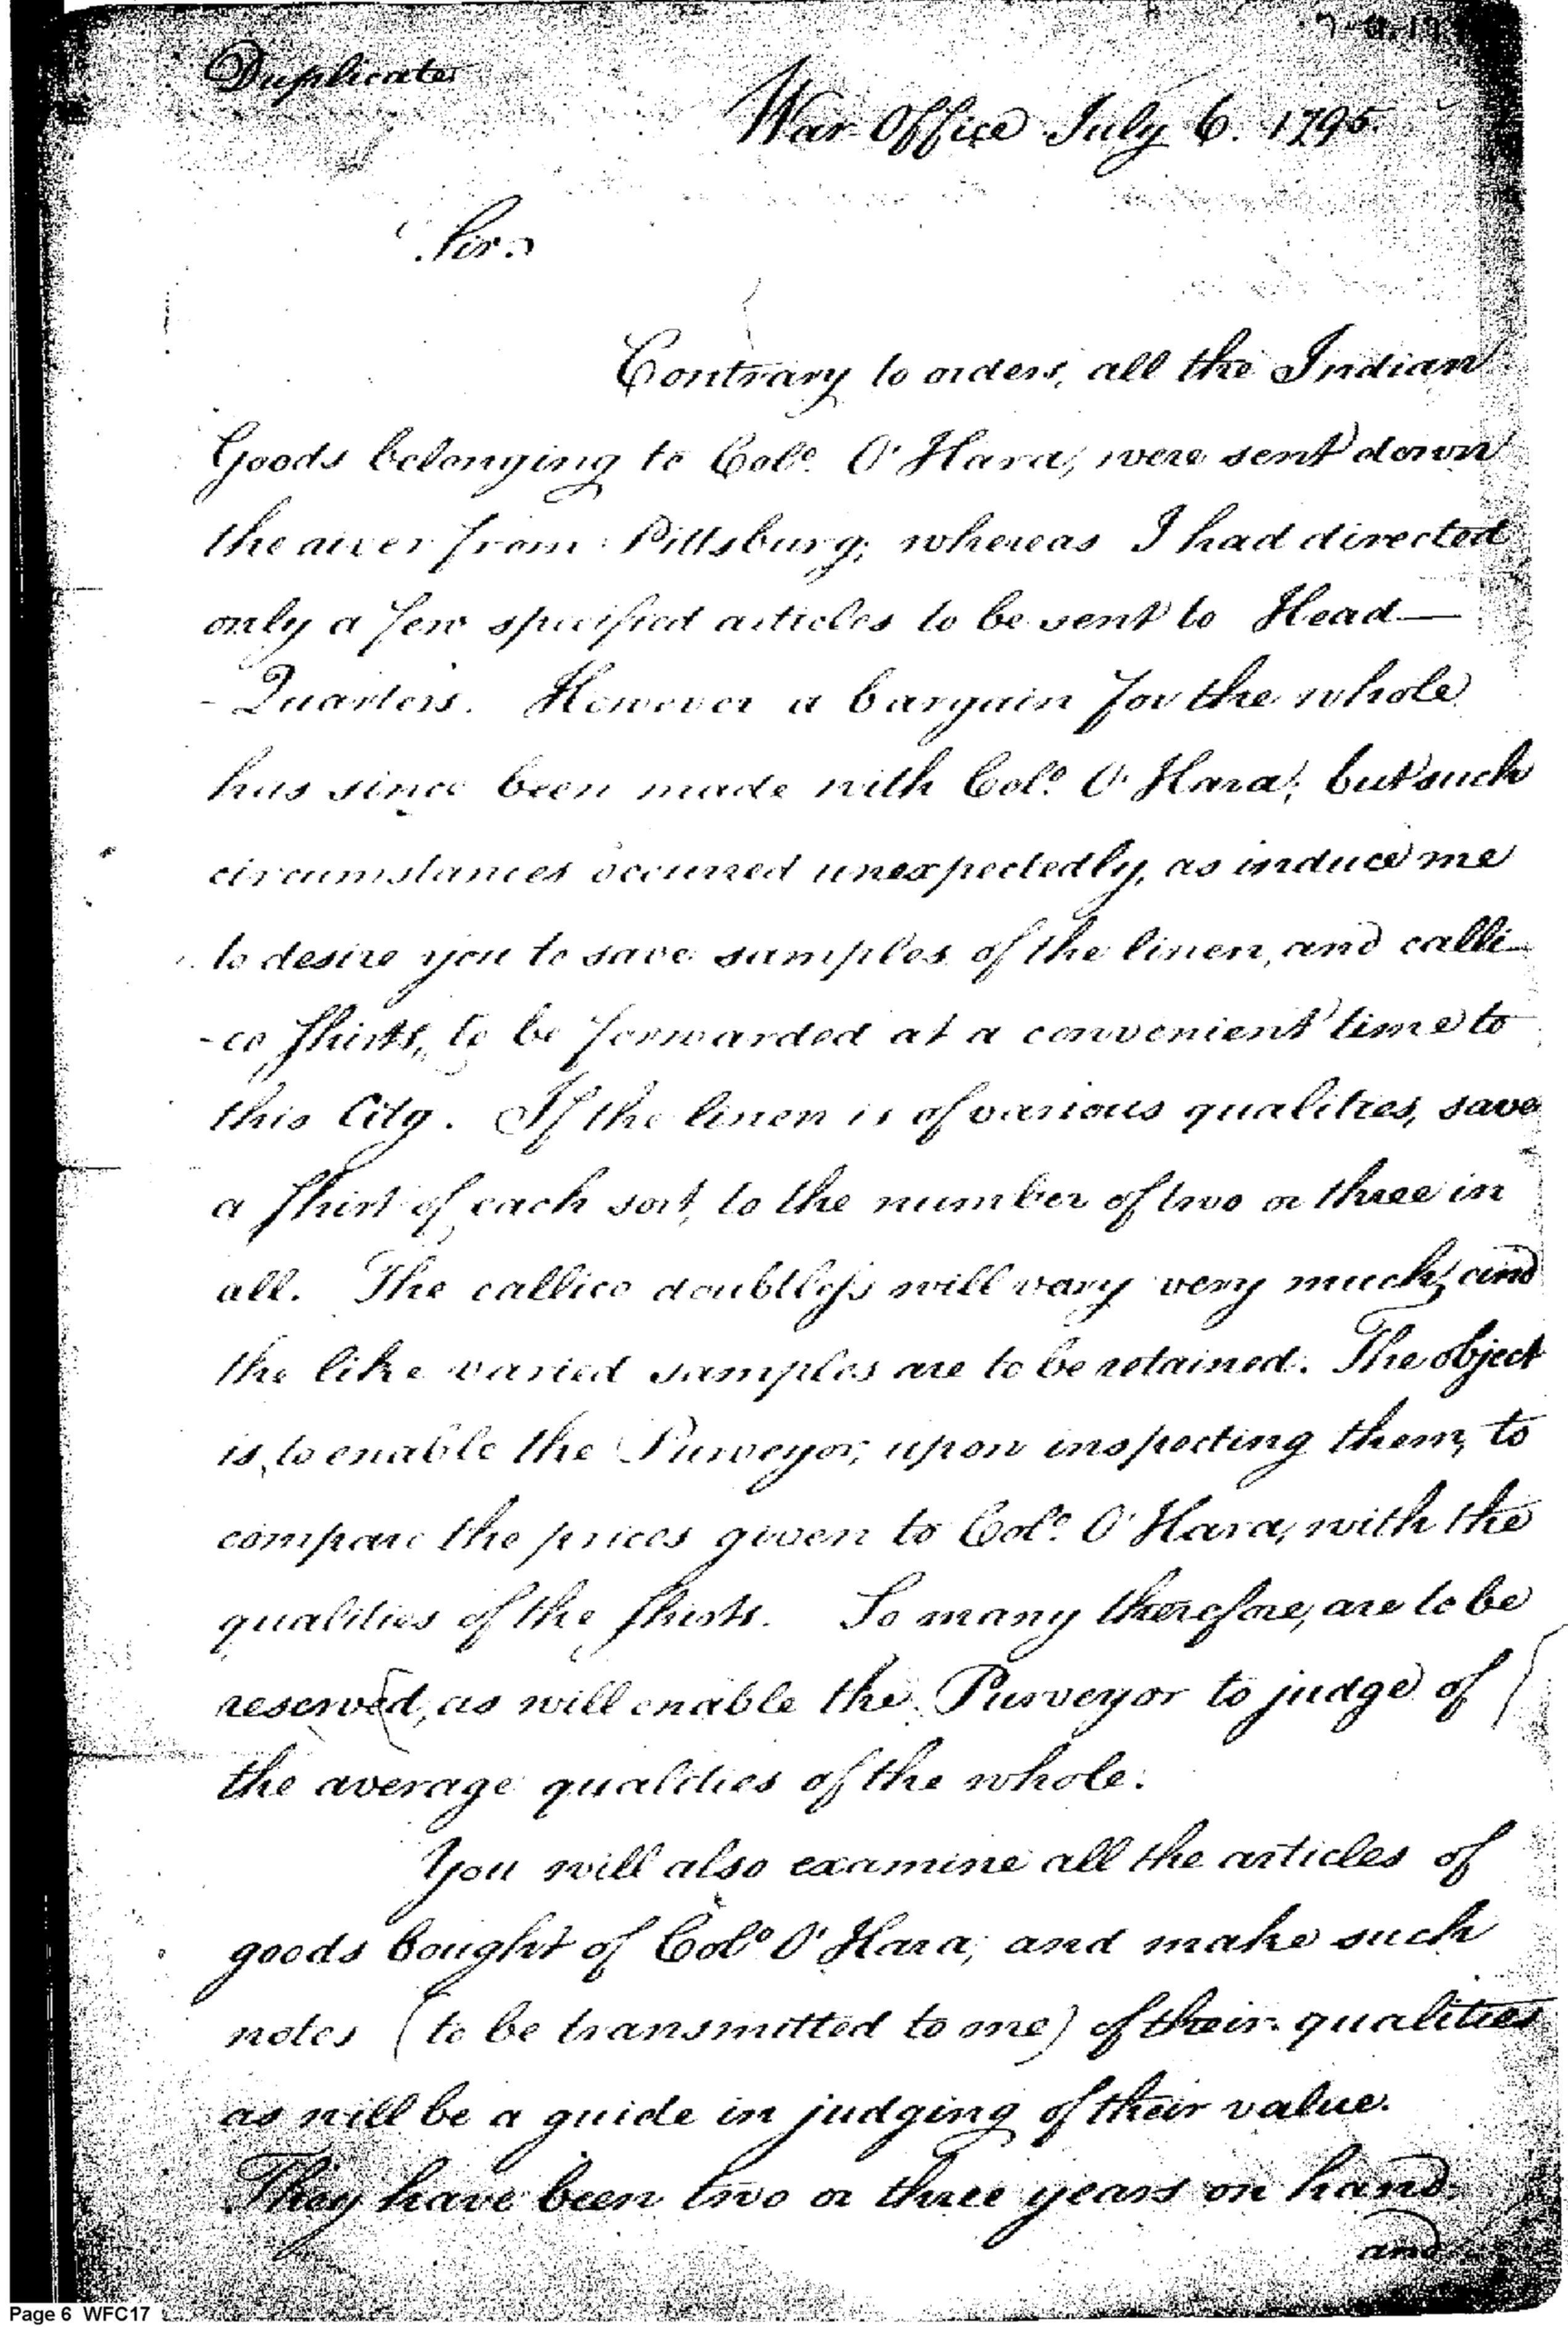 Duplicate
War Office July 6. 1795.
Sir.
Contrary to orders, all the Indian
Goods belonging to Colo. O'Hara, were sent down
the river from Pittsburg; whereas I had directed
only a few specified articles to be sent to Head—
-Quarters. However a bargain for the whole
has since been made with Colo. O'Hara; but such
circumstances occurred unexpectedly, as induce me
to desire you to save samples of the linen, and calli-
-co shirts, to be forwarded at a convenient time to
this City. If the linen is of various qualities, save
a shirt of each sort, to the number of two or three in
all. The callico doubtless will vary very much, and
the like varied samples are to be retained. The object
is, to enable the Purveyor, upon inspecting them, to
compare the prices given to Colo. O'Hara, with the
qualities of the shirts. So many therefore, are to be
reserved, as will enable the Purveyor to judge of
the average qualities of the whole.
You will also examine all the articles of
goods bought of Colo. O'Hara, and make such
notes (to be transmitted to me) of their qualities
as will be a guide in judging of their value.
They have been two or three years on hand.
and
Page 6 WFC17